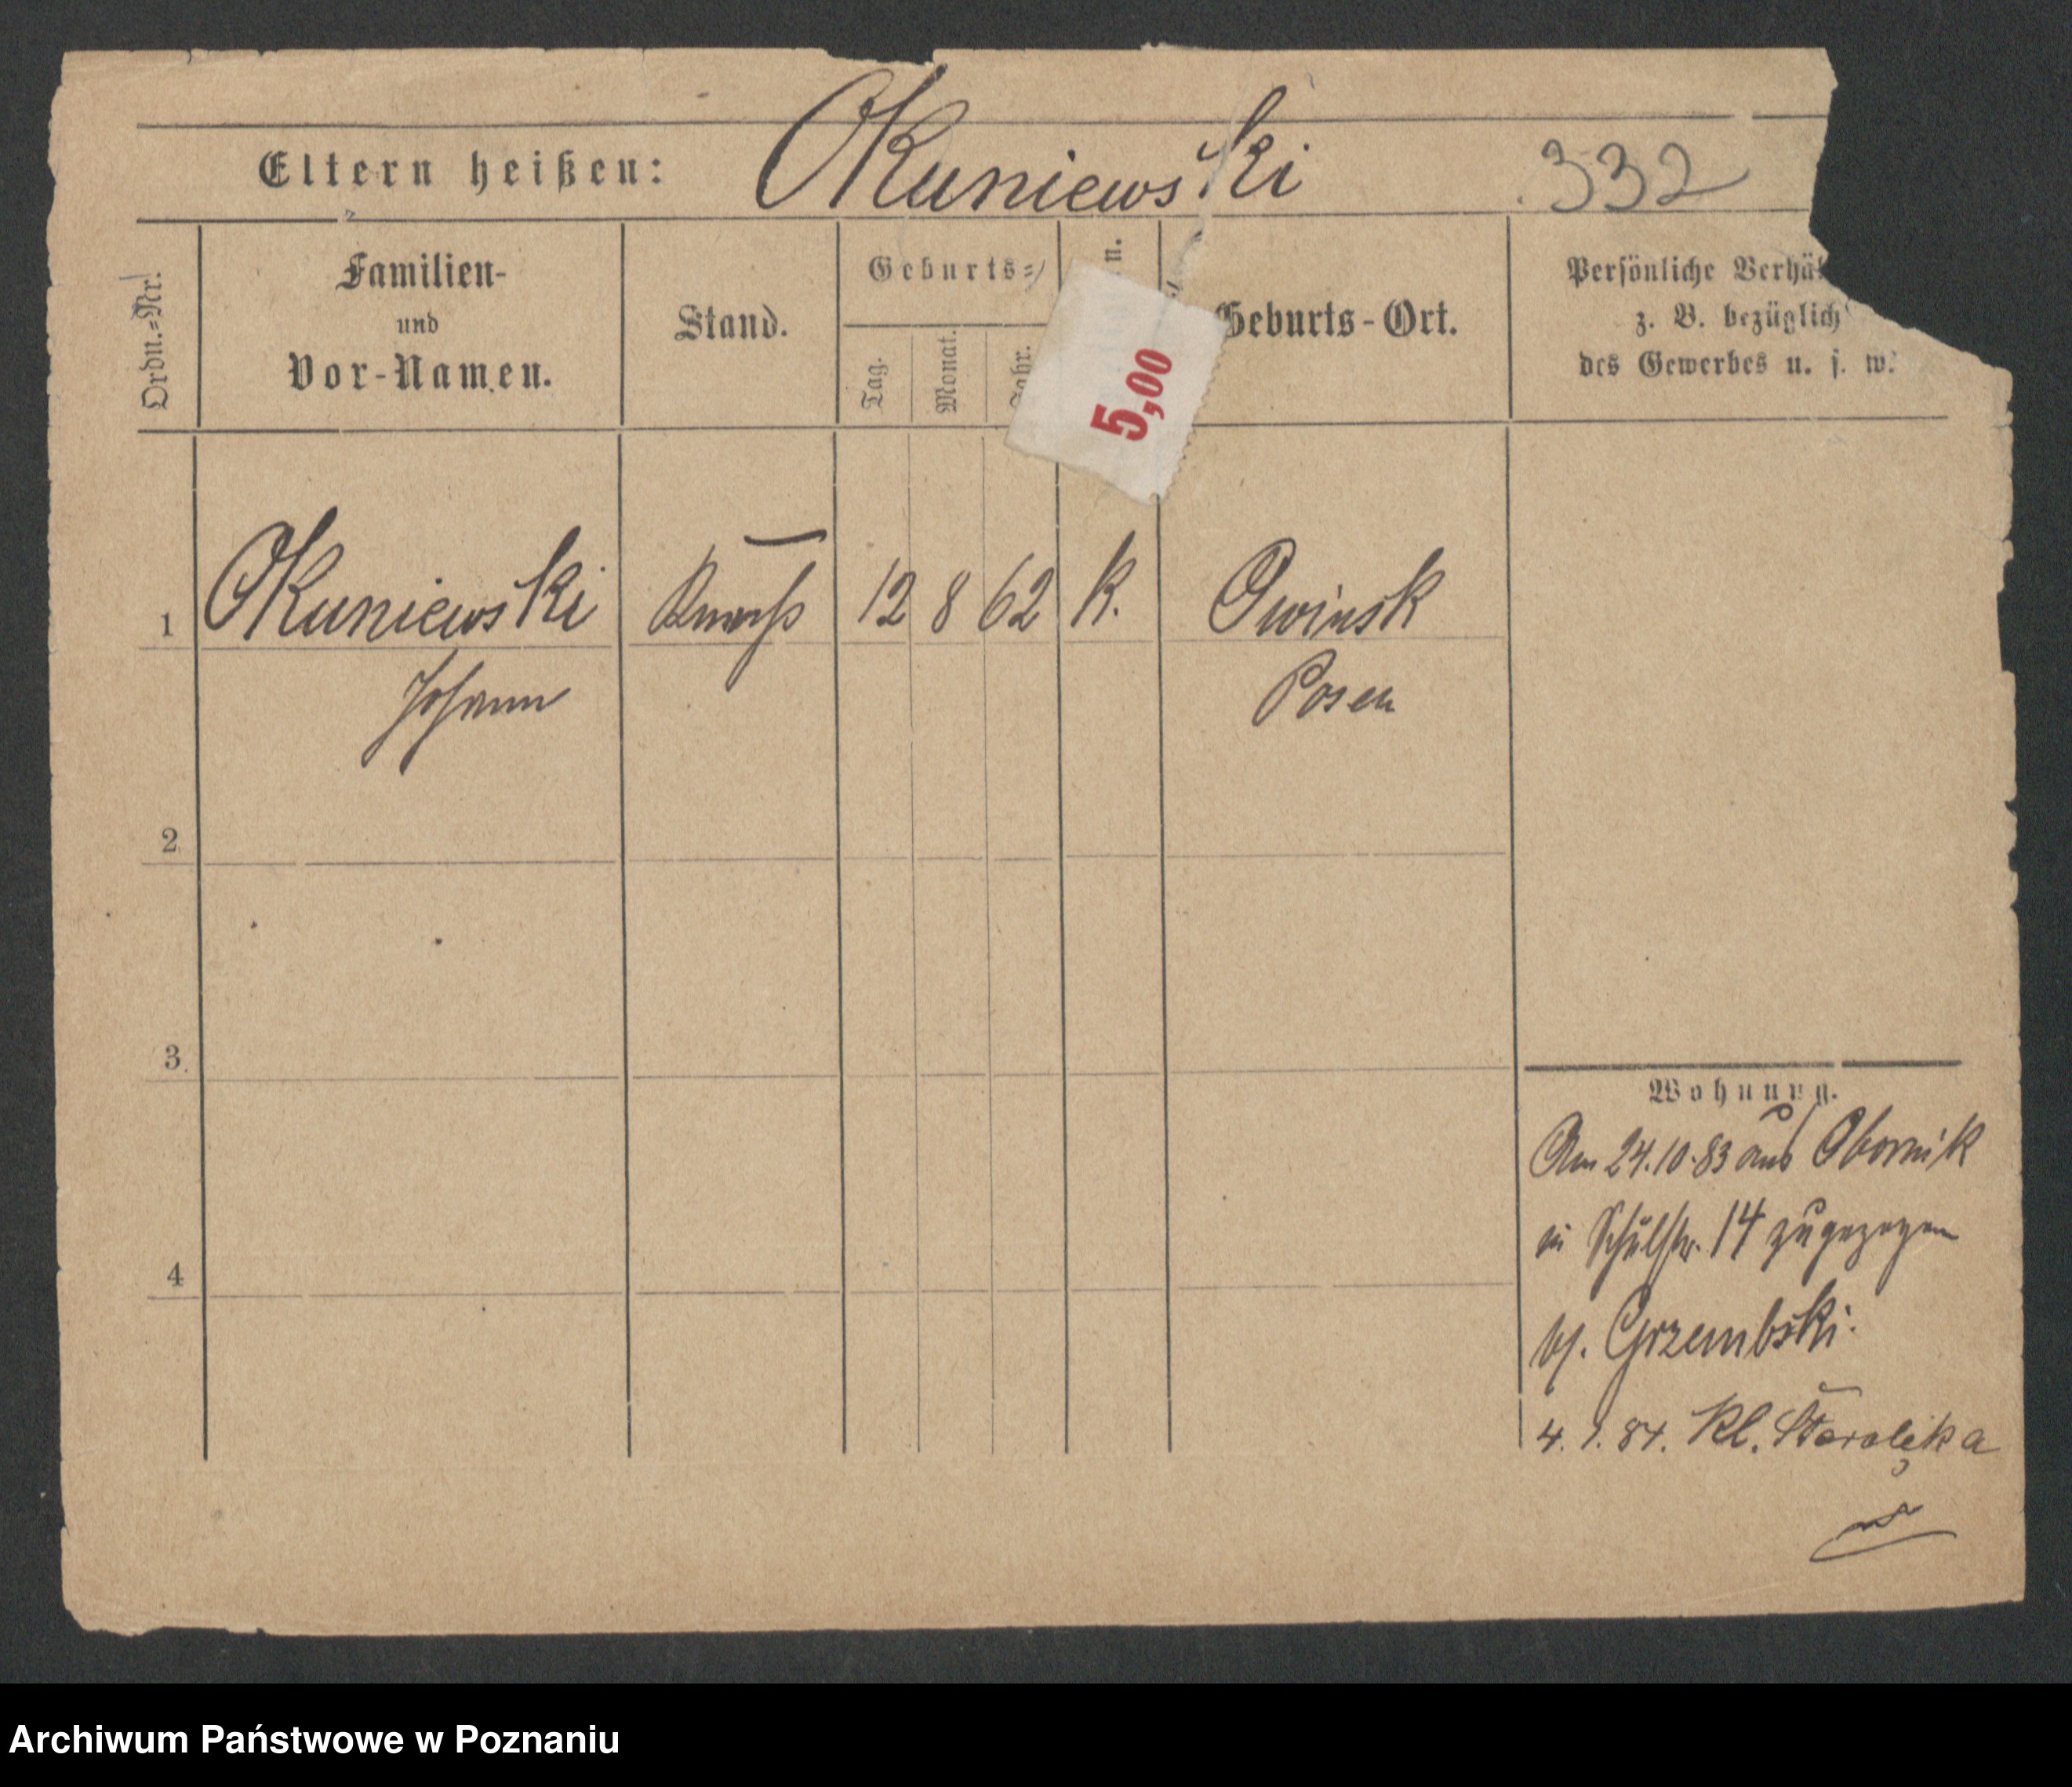 Eltern heißen: Okuniewski 332
Ordn.=Nr.
Familien-
und
Vor-Namen.
Stand.
Geburts=
Tag.
Monat.
Jahr.
n.
5,00
Geburts-Ort.
Persönliche Verhäl
z. B. bezüglich
des Gewerbes u. s. w.
1 Okuniewski 12 8 62 K. Owinsk
Johann Posen
2
3
4
Wohnung.
Am 24.10.83 aus Obornik
in Schulstr. 14 zugezogen
b/. Grzembski.
4. 1. 84. Kl. Staroleka
Archiwum Państwowe w Poznaniu